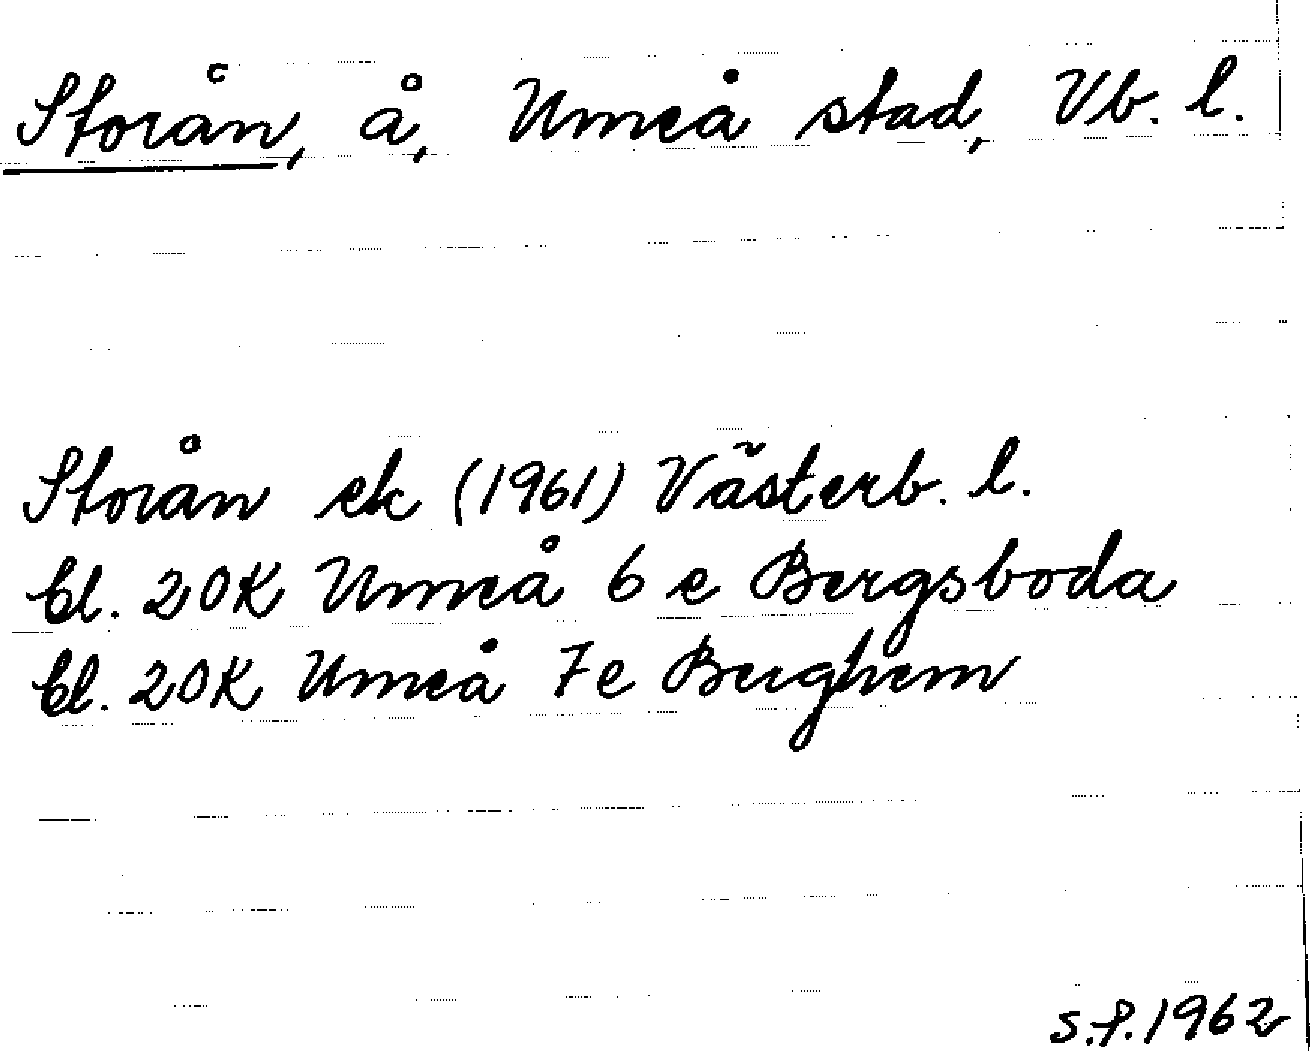 Storån, å, Umeå stad, Vb. l.
Storån ek (1961) Västerb. l.
Bl. 20K Umeå 6 e Bergsboda
Bl. 20K Umeå 7e Berghem
S.P. 1962